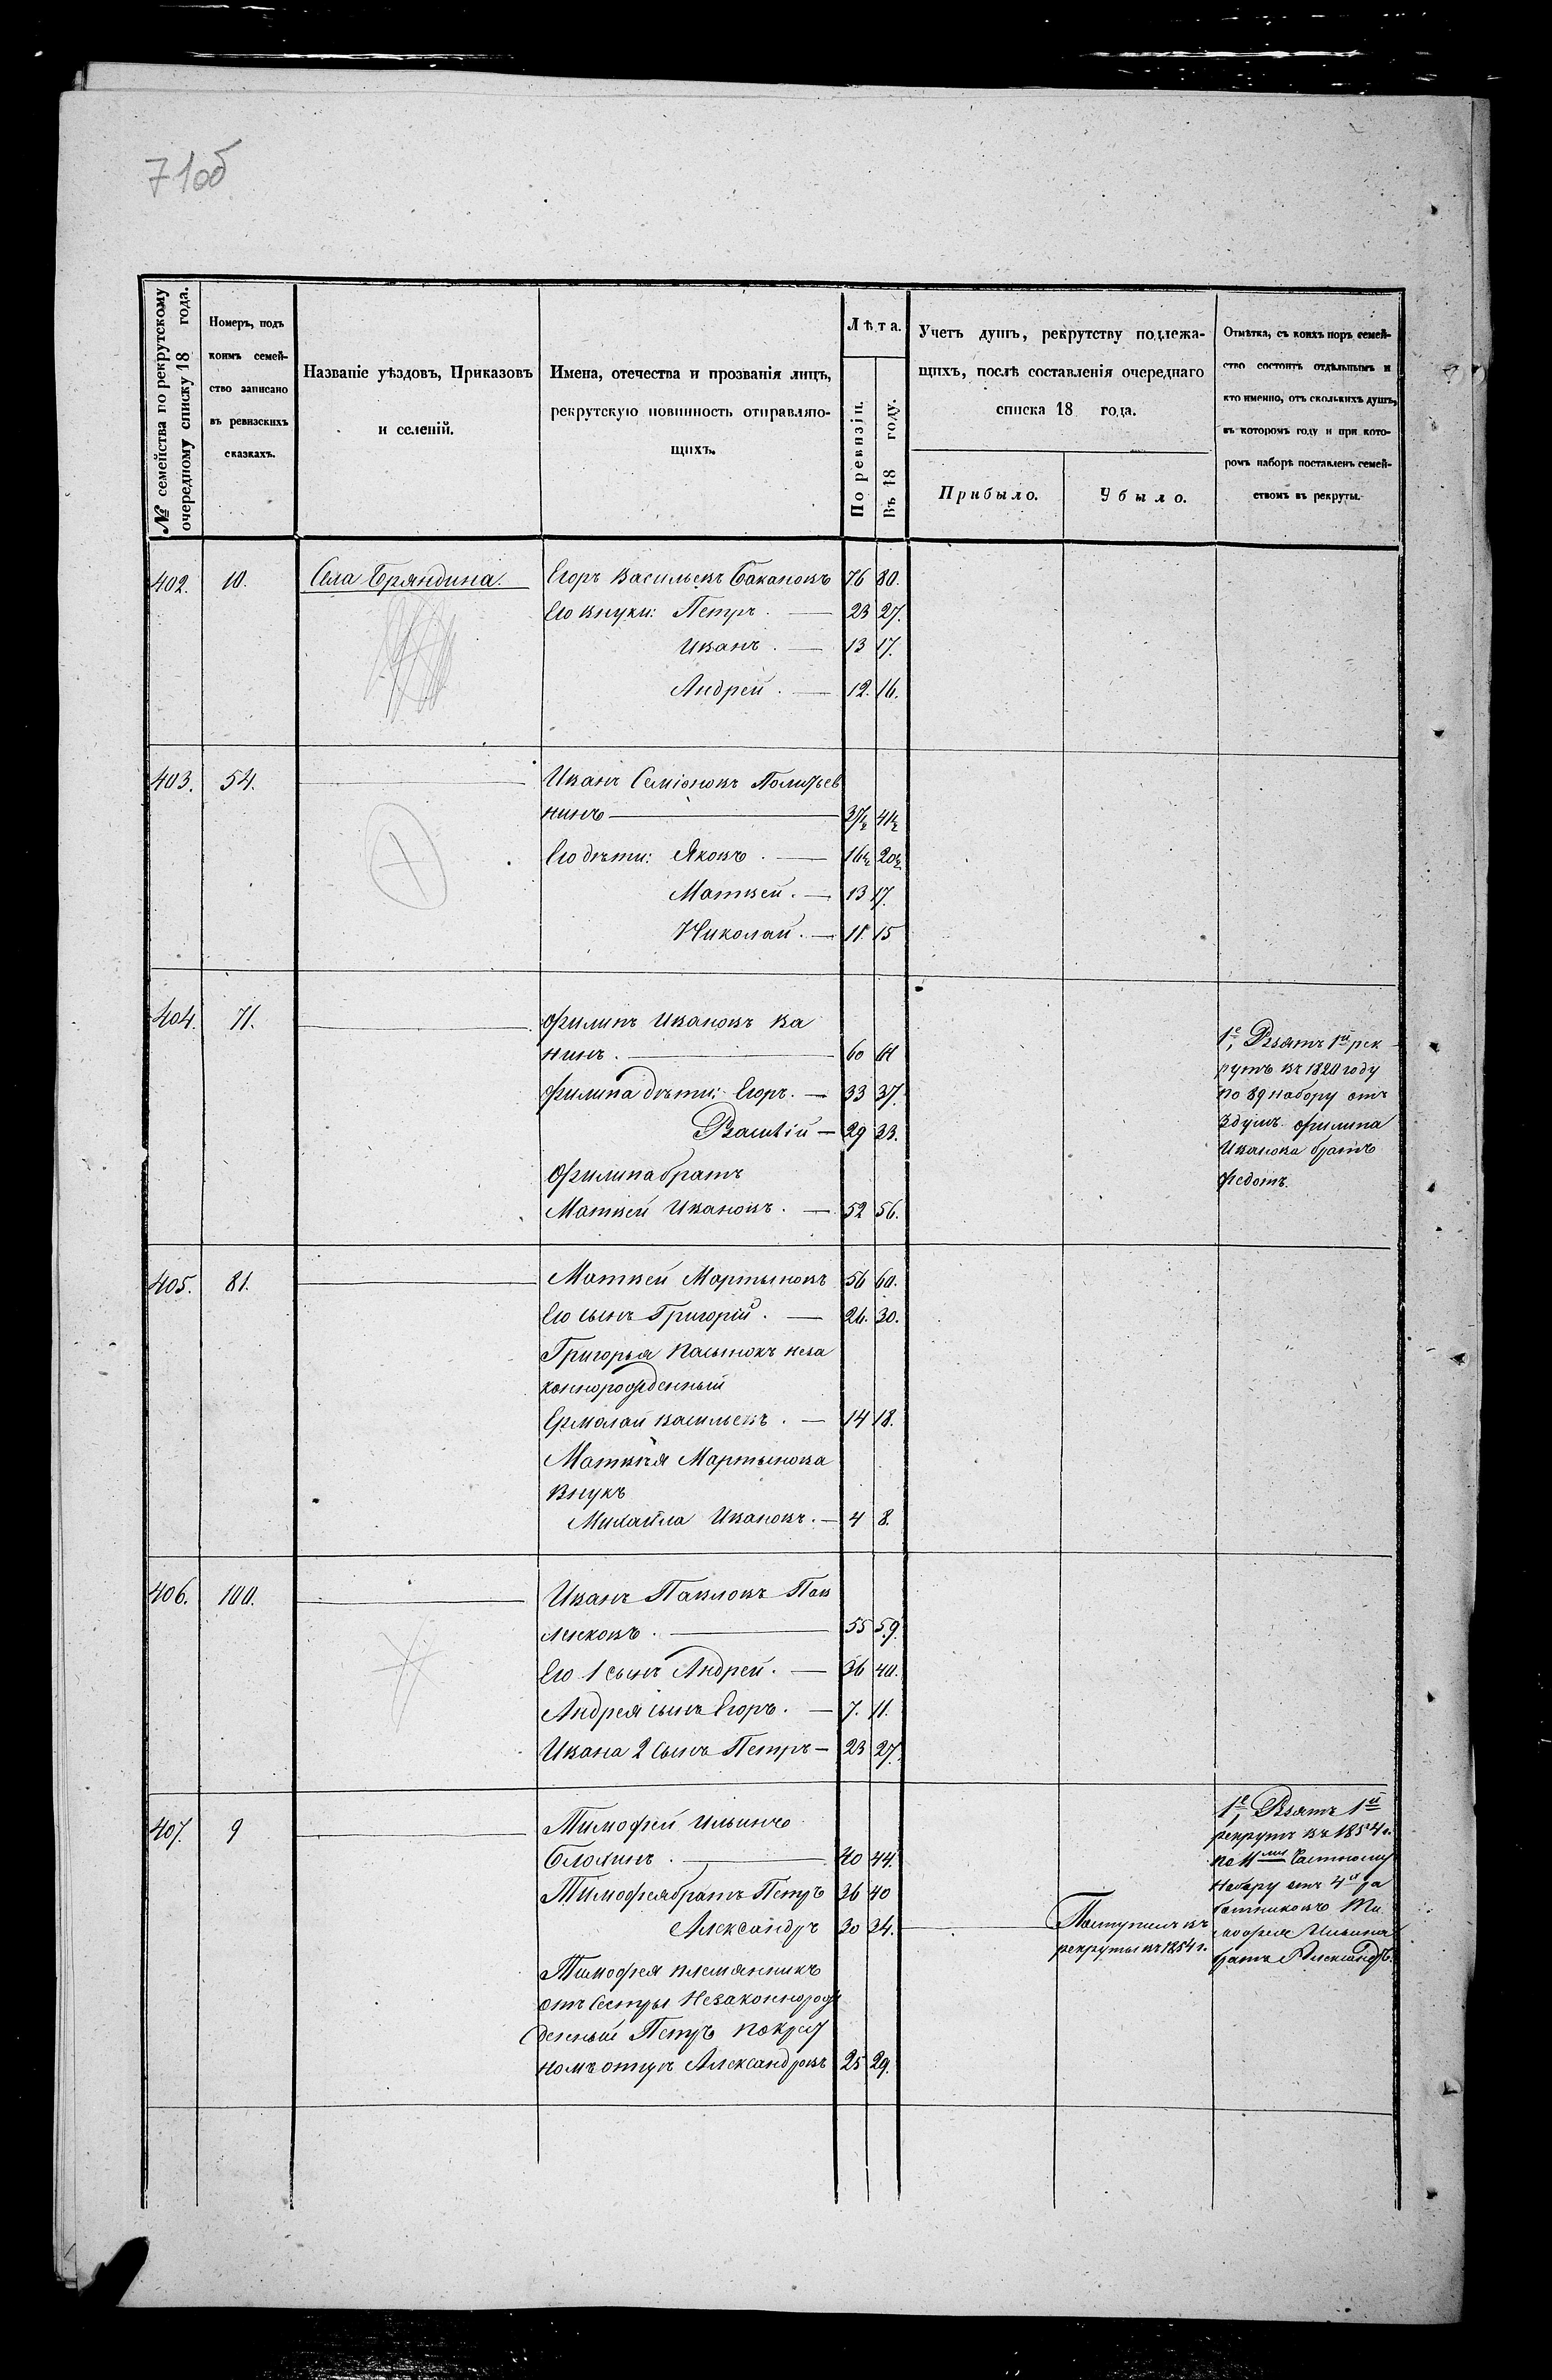 71об
№ семейства по рекрутскому очередному списку 18 года.
Номеръ, подъ
коимъ семей-
ство записано
въ ревизскихъ
сказкахъ.
Названіе уѣздовъ, Приказовъ
и селеній.
Имена, отечества и прозванія лицъ,
рекрутскую повинность отправляю-
щихъ.
Лѣта.
По ревизіи.
Въ 18 году.
Учетъ душъ, рекрутству подлежа-
щихъ, послѣ составленія очереднаго
списка 18 года.
Прибыло.
Убыло.
Отмѣтка, съ коихъ поръ семей-
ство состоитъ отдѣльнымъ и
кто именно, отъ сколькихъ душъ,
въ которомъ году и при кото-
ромъ наборѣ поставленъ семей-
ствомъ въ рекруты.
402. 10. Села Бряндина. Егоръ Васильевъ Бакановъ 76 80.
Его внуки: Петръ. — 23 27.
Иванъ. — 13 17.
Андрей. — 12. 16.
403. 54. — Иванъ Семіоновъ
нинъ — 37½ 41½
Его дѣти: Яковъ. — 16½ 20½
Матвей. — 13 17.
Николай. — 11. 15
404. 71. — Филипъ Ивановъ Ва
нинъ. — 60 64
Филипа дѣти: Егоръ. — 33 37.
Василій — 29 33.
Филипа братъ
Матвей Ивановъ. — 52 56.
1е, Взятъ 1й рек
рутъ въ 1820 году
по 89 набору отъ
душъ Филипа
Иванова братъ
Федотъ.
405. 81. — Матвей Мартыновъ 56 60.
Его сынъ Григорій. — 26. 30.
Григорья пасынокъ неза
коннорожденный
Ермолай Васильевъ. — 14 18.
Матвѣя Мартынова
внукъ
Михайла Ивановъ. — 4 8.
406. 100. — Иванъ Павловъ Пав
ленковъ. — 55 59.
Его 1 сынъ Андрей. — 36 40.
Андрея сынъ Егоръ. — 7. 11.
Ивана 2 сынъ Петръ — 23 27.
407. 9 — Тимофей Ильинъ
Блохинъ. — 40 44.
Тимофея братъ Петръ 36 40
Александръ 30 34. — Поступилъ въ
рекруты въ 1854 г.
Тимофея племянникъ
отъ сестры незаконнорож
денный Петръ по крест
ному отцу Александровъ 25 29.
1е, Взятъ 1й
рекрутъ въ 1854 г.
по 11 частному
набору отъ 4х ра
ботниковъ Ти
мофея Ильина
братъ Александръ.